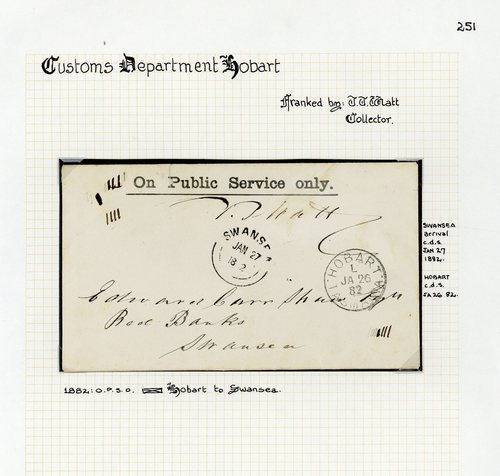 251
Customs Department Hobart
Franked by: T.T. Watt
Collector.
On Public Service only.
T. T Watt
SWANSE
JAN 27
18 2
HOBART
L
JA 26
82
Edward Carr Shaw Esq
Red Banks
Swansea
SWANSEA
arrival
c.d.s.
JAN 27
1882.
HOBART
c.d.s.
JA 26 82.
1882: O.P.S.O. Hobart to Swansea.